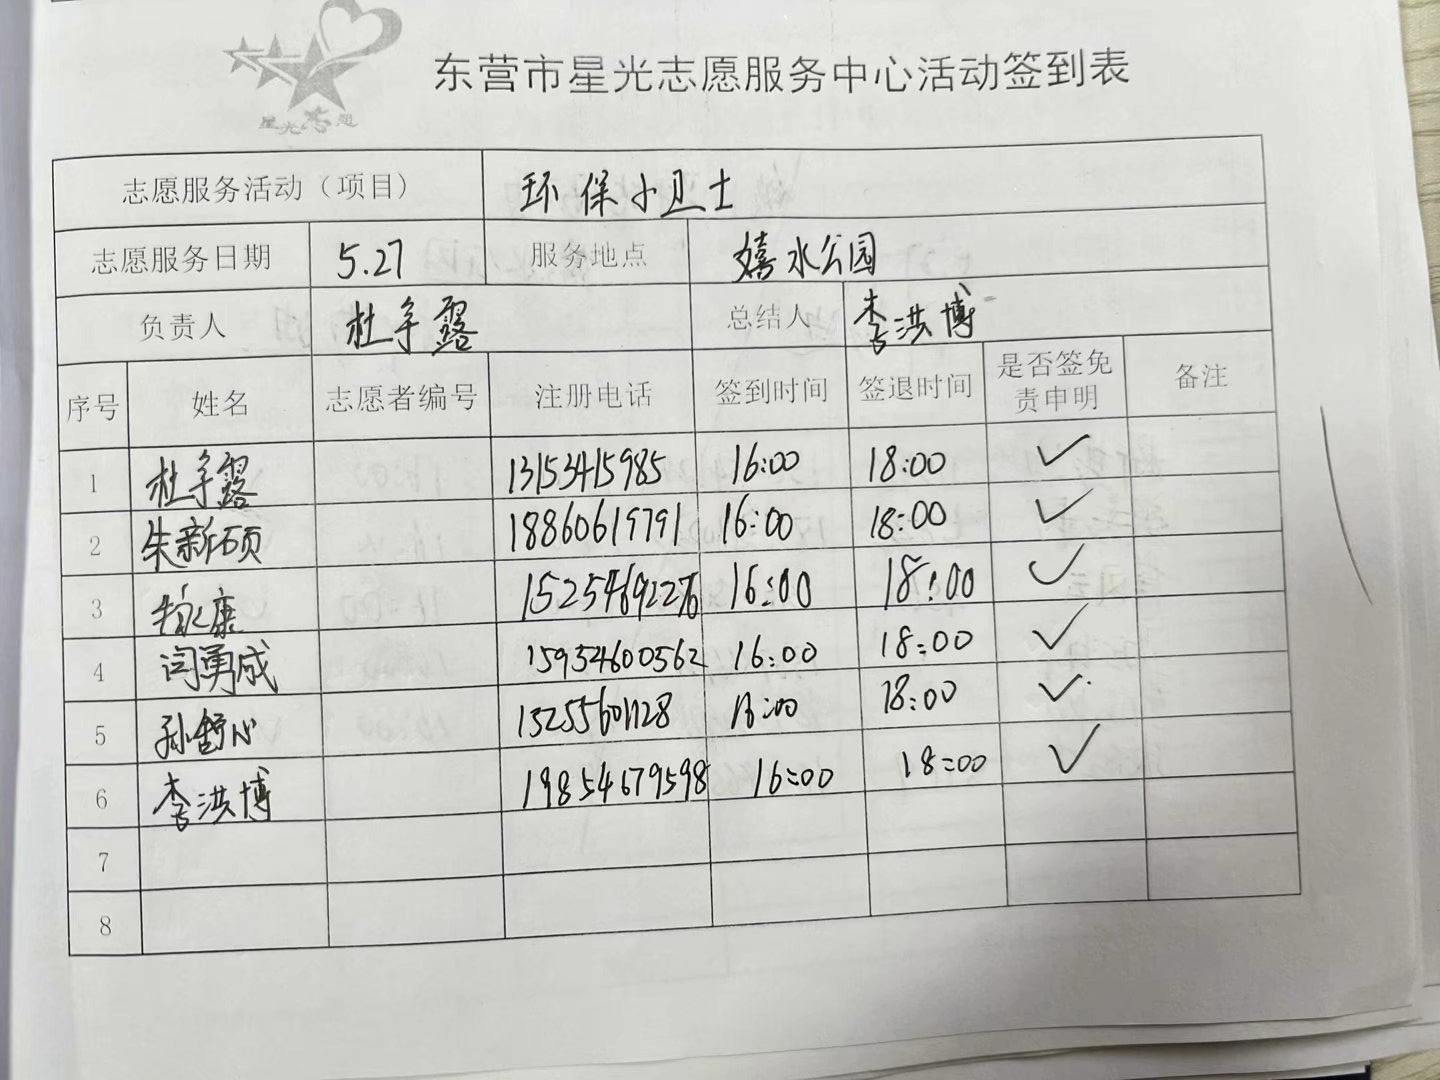 星光志愿
东营市星光志愿服务中心活动签到表
志愿服务活动（项目） 环保小卫士
志愿服务日期 5.27 服务地点 嬉水公园
负责人 杜予露 总结人 李洪博
序号 姓名 志愿者编号 注册电话 签到时间 签退时间 是否签免责申明 备注
1 杜予露 13153415985 16:00 18:00 ✓
2 朱新硕 18860619791 16:00 18:00 ✓
3 康 16:00 18:00 ✓
4 闫勇成 15954600562 16:00 18:00 ✓
5 孙舒心 18:00 ✓
6 李洪博 19854679598 16:00 18:00 ✓
7
8